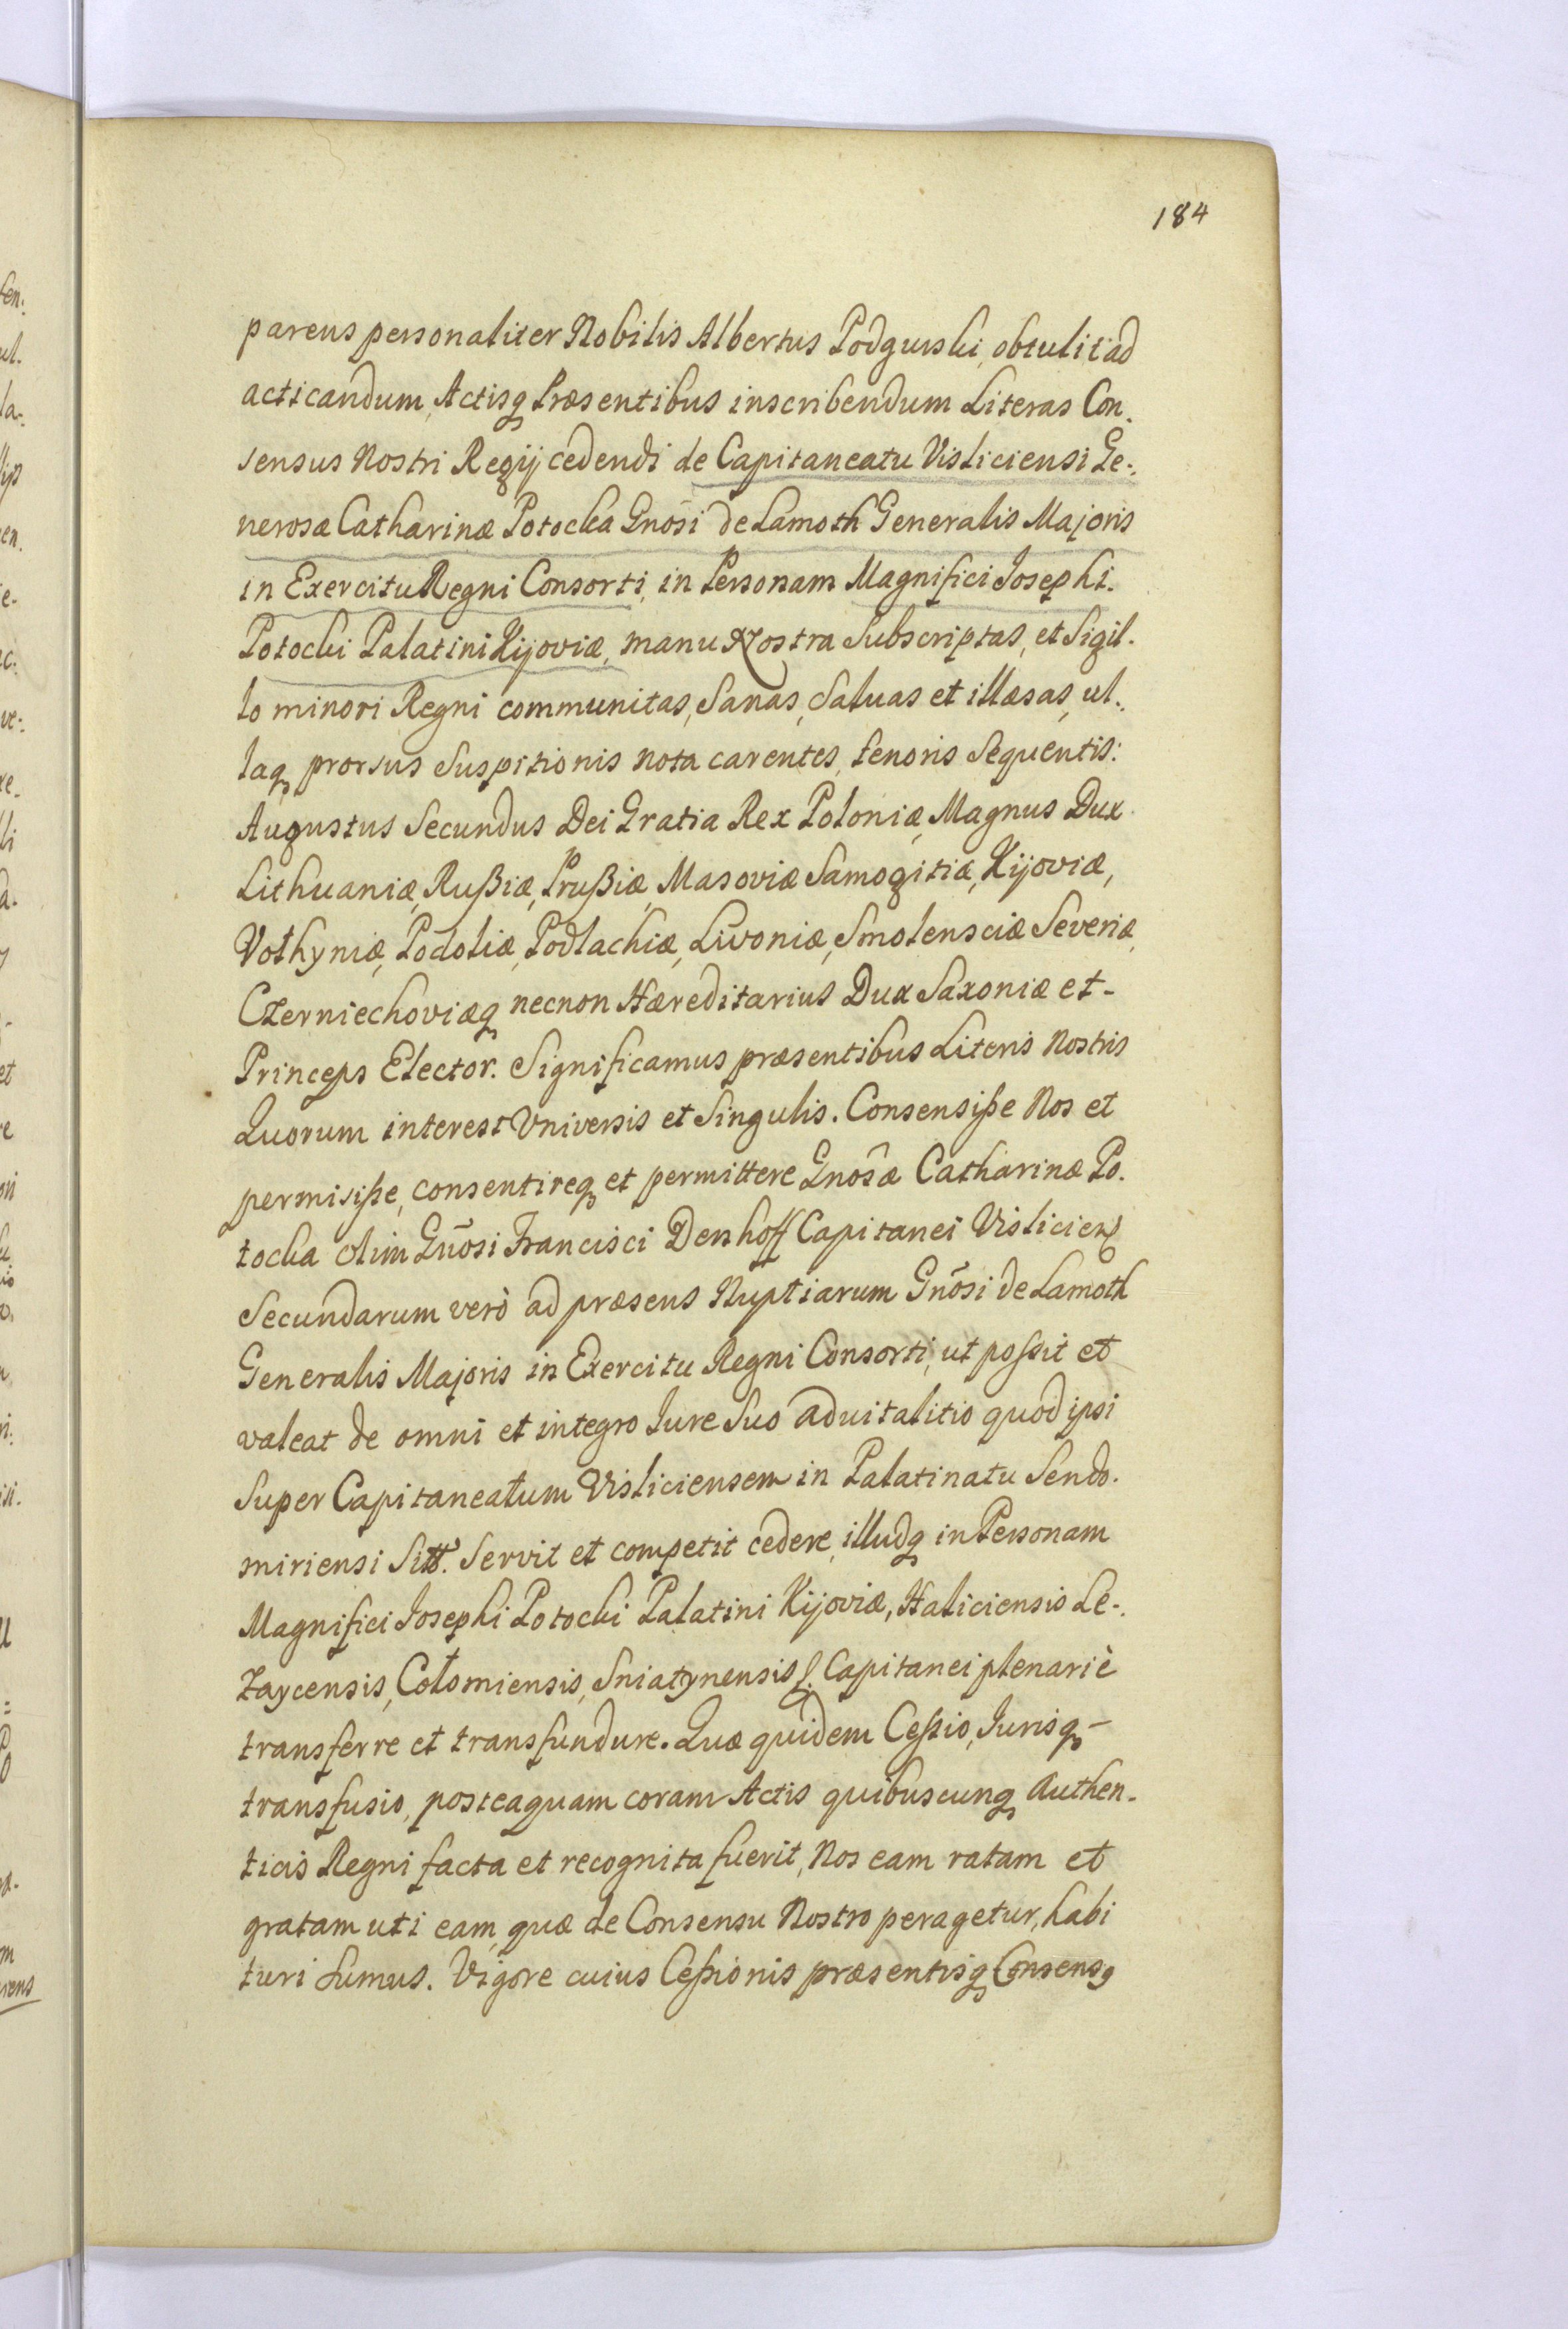 184
parens personaliter Nobilis Albertus Podgurski, obtulit ad
acticandum, Actisq Præsentibus inscribendum Literas Con.
sensus Nostri Regij cedendi de Capitaneatu Visliciensi Ge-.
nerosæ Catharinæ Potocka Gnōsi de Lamoth Generalis Majoris
in Exercitu Regni Consorti, in Personam Magnifici Josephi.
Potocki Palatini Kijoviæ, manu Nostra Subscriptas, et Sigil.
lo minori Regni communitas, Sanas, Saluas et illæsas, ul.
laq prorsus Suspitionis nota carentes, tenoris Sequentis:
Augustus Secundus Dei Gratia Rex Poloniæ, Magnus Dux
Lithuaniæ, Rußiæ, Prußiæ, Masoviæ Samogitiæ, Kijoviæ,
Volhyniæ, Podoliæ, Podlachiæ, Livoniæ, Smolensciæ Severiæ,
Czerniechoviæq necnon Hæreditarius Dux Saxoniæ et-
Princeps Elector. Significamus præsentibus Literis Nostris
Quorum interest Vniversis et Singulis. Consensiße Nos et
permisiße, consentireq et permittere Gnōsæ Catharinæ Po.
tocka olim Gnōsi Francisci Denhoff Capitanei Vislicien
Secundarum verò ad præsens Nuptiarum Gnōsi de Lamoth
Generalis Majoris in Exercitu Regni Consorti, ut poßit et
valeat de omni et integro Jure Suo aduitalitio quod ipsi
Super Capitaneatum Visliciensem in Palatinatu Sendo.
miriensi Sitt. Servit et competit cedere, illudq in Personam
Magnifici Josephi Potocki Palatini Kijoviæ, Haliciensis Le-.
zaycensis, Colomiensis, Sniatynensis Capitanei plenariè
transferre et transfundure. Quæ quidem Ceßio, Jurisq-
transfusio, posteaquam coram Actis quibuscunq Authen.
ticis Regni facta et recognita fuerit, Nos eam ratam et
gratam uti eam, quæ de Consensu Nostro peragetur, habi
turi Sumus. Vigore cuius Ceßionis præsentisq Consensq